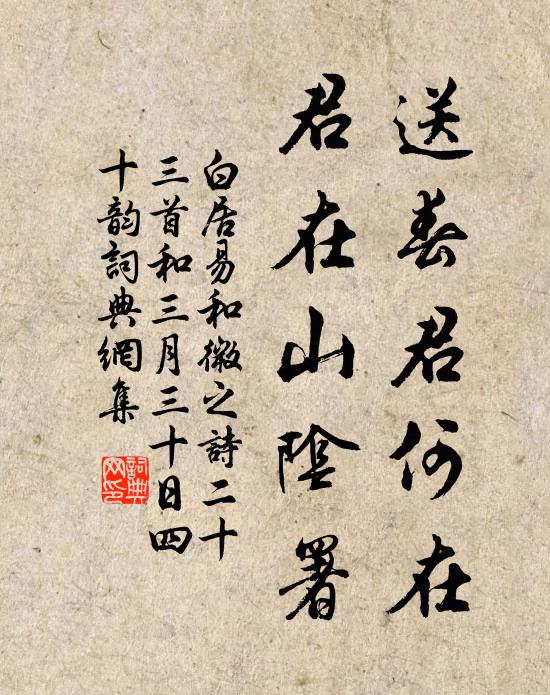 送春君何在
君在山陰署
白居易和微之詩二十
三首和三月三十日四
十韵詞典網集
詞典
网印